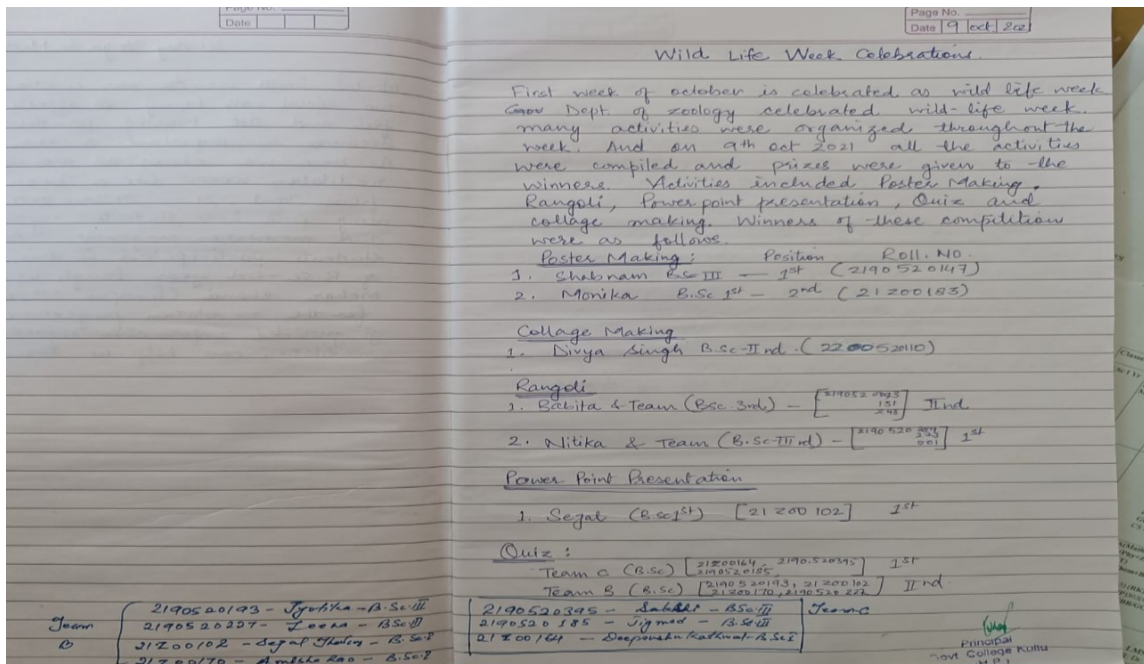 Page No.
Date
Page No.
Date 9 oct 202
Wild Life Week Celebrations.
First week of october is celebrated as wild life week
Dept. of zoology celebrated wild-life week.
many activities were organized throughout the
week. And on 9th oct 2021 all the activities
were compiled and prizes were given to the
winners. Activities included Poster Making,
Rangoli, Power point presentation, Quiz and
collage making. Winners of these compitition
were as follows.
Poster Making : Position Roll. No.
1. Shabnam B.Sc III — 1st (2190520147)
2. Monika B.Sc 1st — 2nd (21Z00183)
Collage Making
1. Divya Singh B.Sc-IInd. (2200520110)
Rangoli
1. Babita & Team (Bsc. 3rd) — [ ] IInd
2. Nitika & Team (B.Sc-IIIrd) — [2190 520 001] 1st
Power Point Presentation
1. Sejal (B.Sc 1st) [21Z00102] 1st
Quiz :
Team C (B.Sc) [21Z00164, 2190520395 1st
2190520185]
Team B (B.Sc) [2190520193, 21Z00102 IInd
21Z00170, 2190520227]
Team B
2190520193 - Jyotika - B.Sc III
2190520227 - - BSc III
21Z00102 - Sejal - B.Sc I
21Z00170 - Rao - B.Sc I
2190520395 - Sakshi - BSc III Team C
2190520185 - Jigmed - B.Sc III
21Z00164 - Deepanshu - B.Sc I
Principal
Govt College Kullu
H.P.